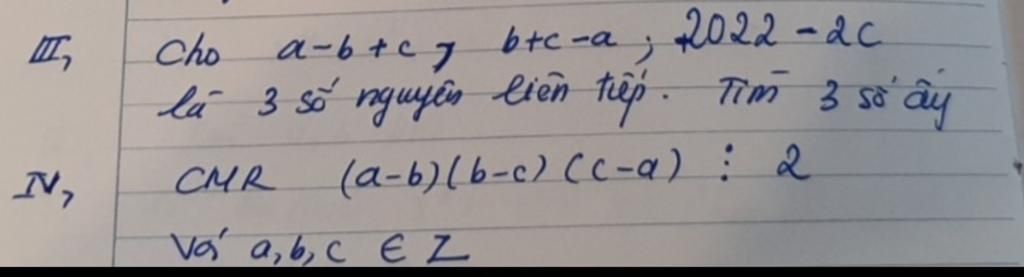 III, Cho a-b+c, b+c-a, 2022-2c
là 3 số nguyên liên tiếp. Tìm 3 số ấy
IV, CMR (a-b)(b-c)(c-a) ⋮ 2
Với a,b,c ∈ Z